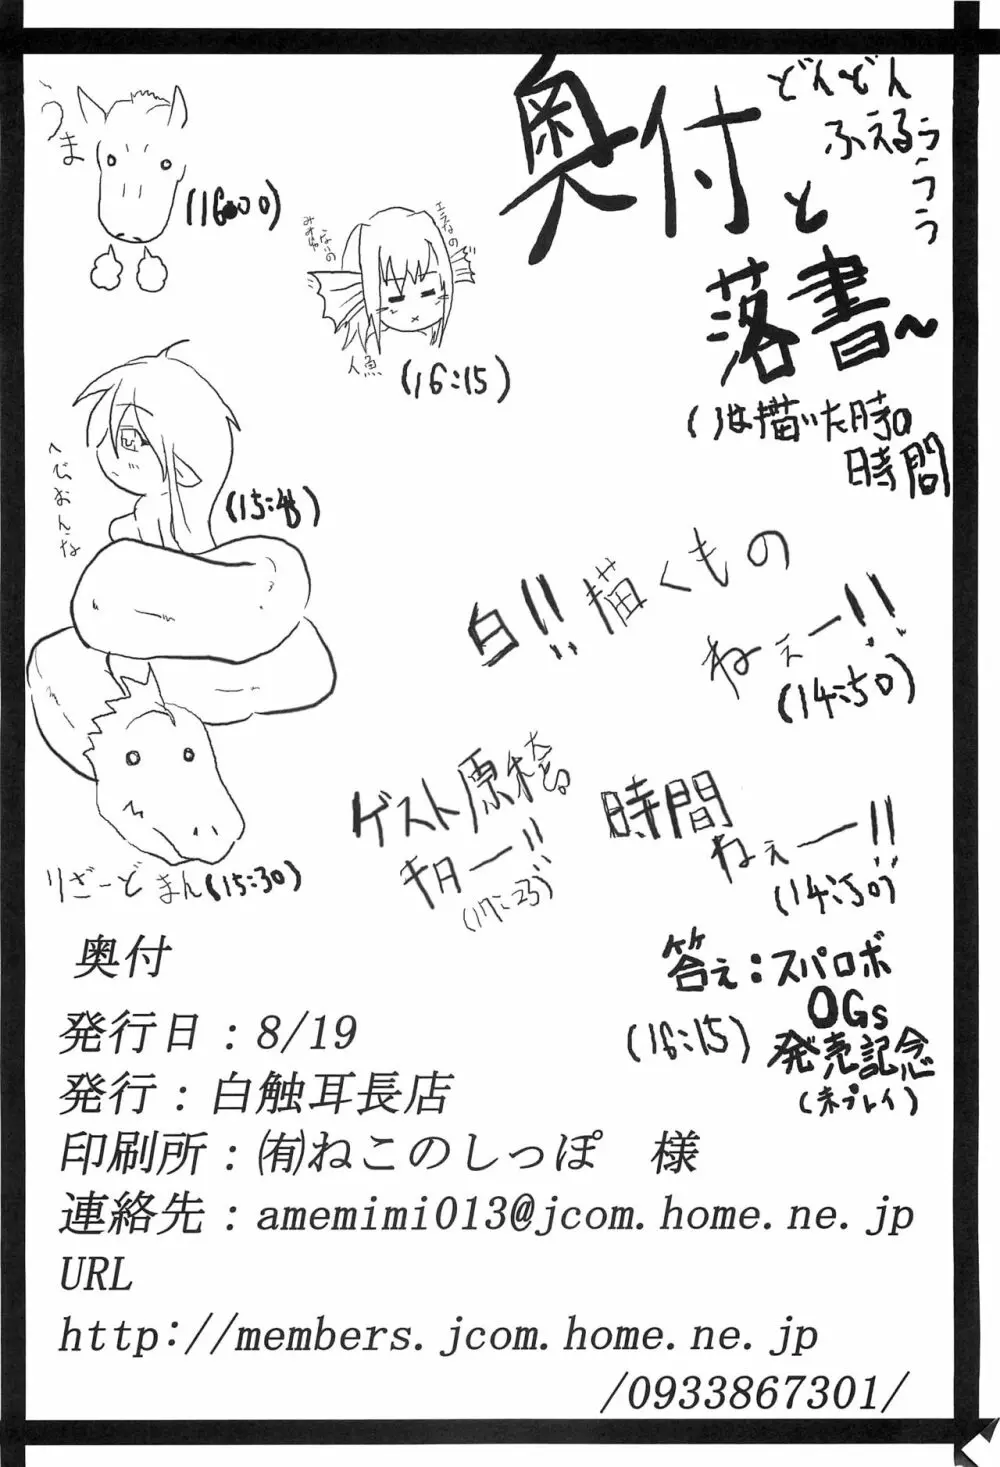 奥付と
落書～
どんどん
ふえるぅ
ぅぅぅ
( )は描いた時の
時間
うま
(16:00)
エラなの
みみじゃないの
人魚
(16:15)
へびおんな
(15:45)
りざーどまん(15:30)
白!!描くもの
ねぇー!!
(14:50)
ゲスト原稿
キター!!
(17:25)
時間
ねぇー!!
(14:50)
答え:スパロボ
OGs
発売記念
(未プレイ)
(16:15)
奥付
発行日：8/19
発行：白触耳長店
印刷所：㈲ねこのしっぽ　様
連絡先：amemimi013@jcom.home.ne.jp
URL
http://members.jcom.home.ne.jp
/0933867301/